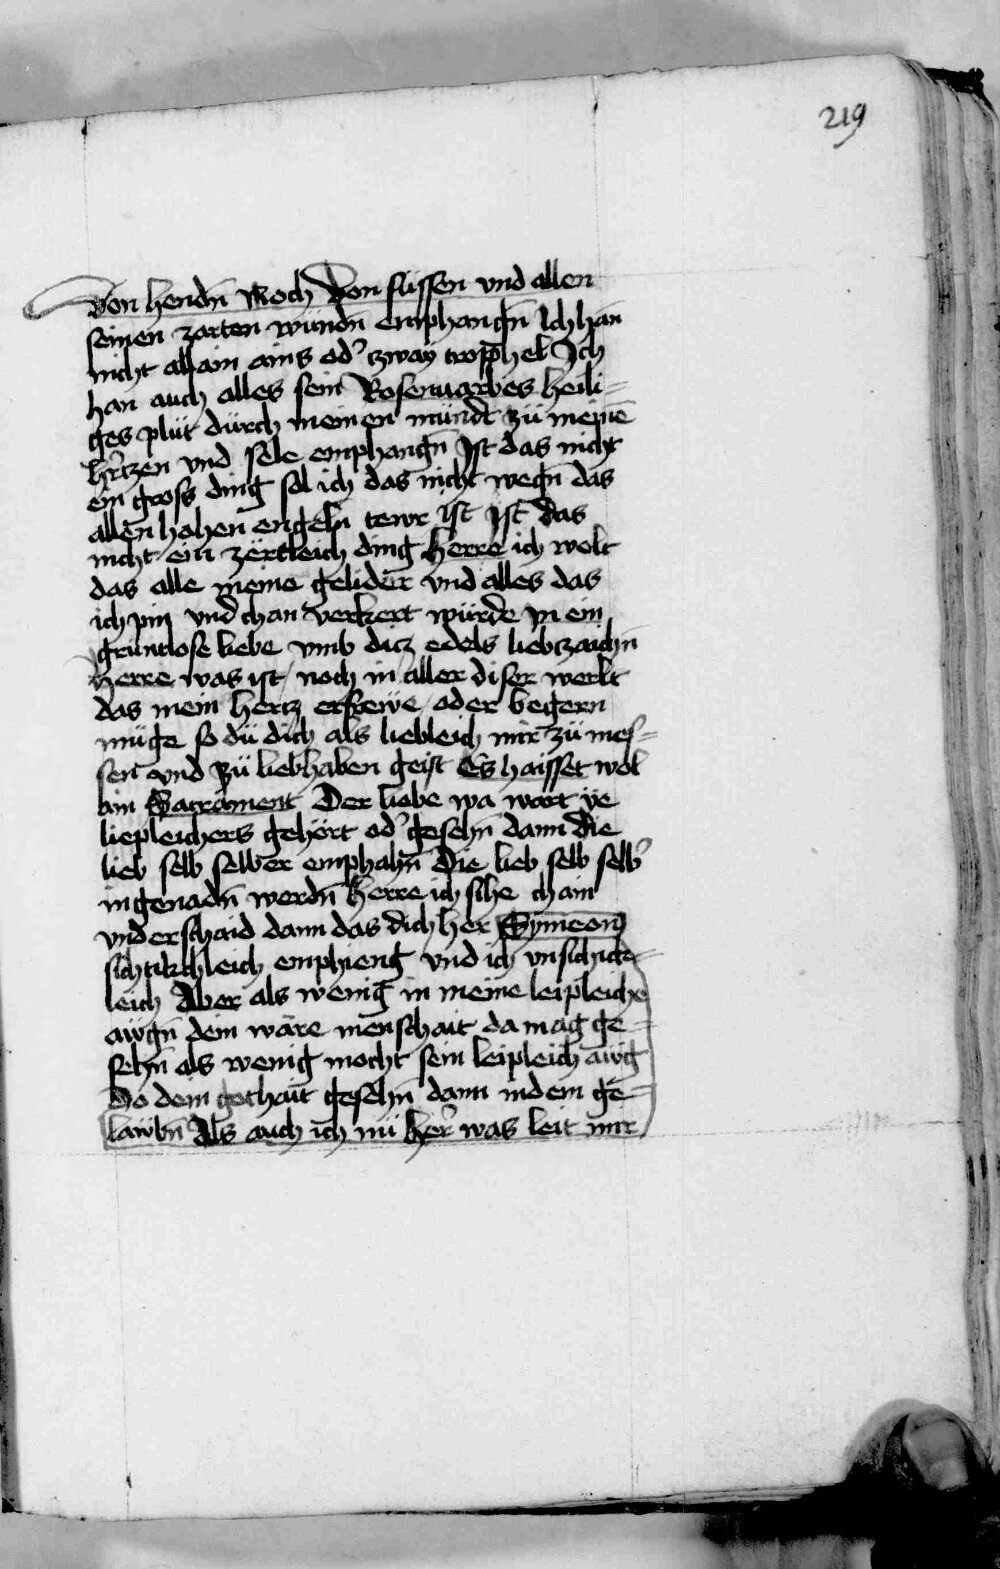 219
Von hendn̄ Noch Von füssen vnd allen
seinen zarten wündn̄ emphangn̄ Ich han
nicht allain ains od' zway trophel Ich
han auch alles sein Rosenuarbes heili=
ges plüt dürch meinen mündt zü meinē
h'tzen vnd sele emphangn̄ Ist das nicht
ein gross ding sol ich das nicht wegn̄ das
allen hohen engeln tewr ist Ist das
nicht ein zërtleich ding Herre ich wolt
das alle meine gelider vnd alles das
ich pin vnd chan verkert würde in ein
gruntlose liebe vmb dicz edels liebczaichn̄
Herre was ist noch in aller diser werlt
das mein hertz erfrewe oder begern
müge so dü dich als liebleich mir zü nies=
sen vnd zü liebhaben geist Es haisset wol
ain Sacrament Der liebe wa wart ye
liepleichers gehört od' gesehn̄ dann die
lieb selb selber emphahn̄ Die lieb selb selb'
in genadn̄ werdn̄ Herre ich sihe chain
vnderschaid dann das dich her Symeon
sichtikchleich emphieng vnd ich vnsichtc=
leich Aber als wenig in meine leipleiche
awgn̄ dein ware menschait da mag ge=
sehn̄ als wenig mocht sein leipleich awg
Do dein gothait gesehn̄ dann in dem ge=
lawbn̄ Als auch ich nü her' was leit mir